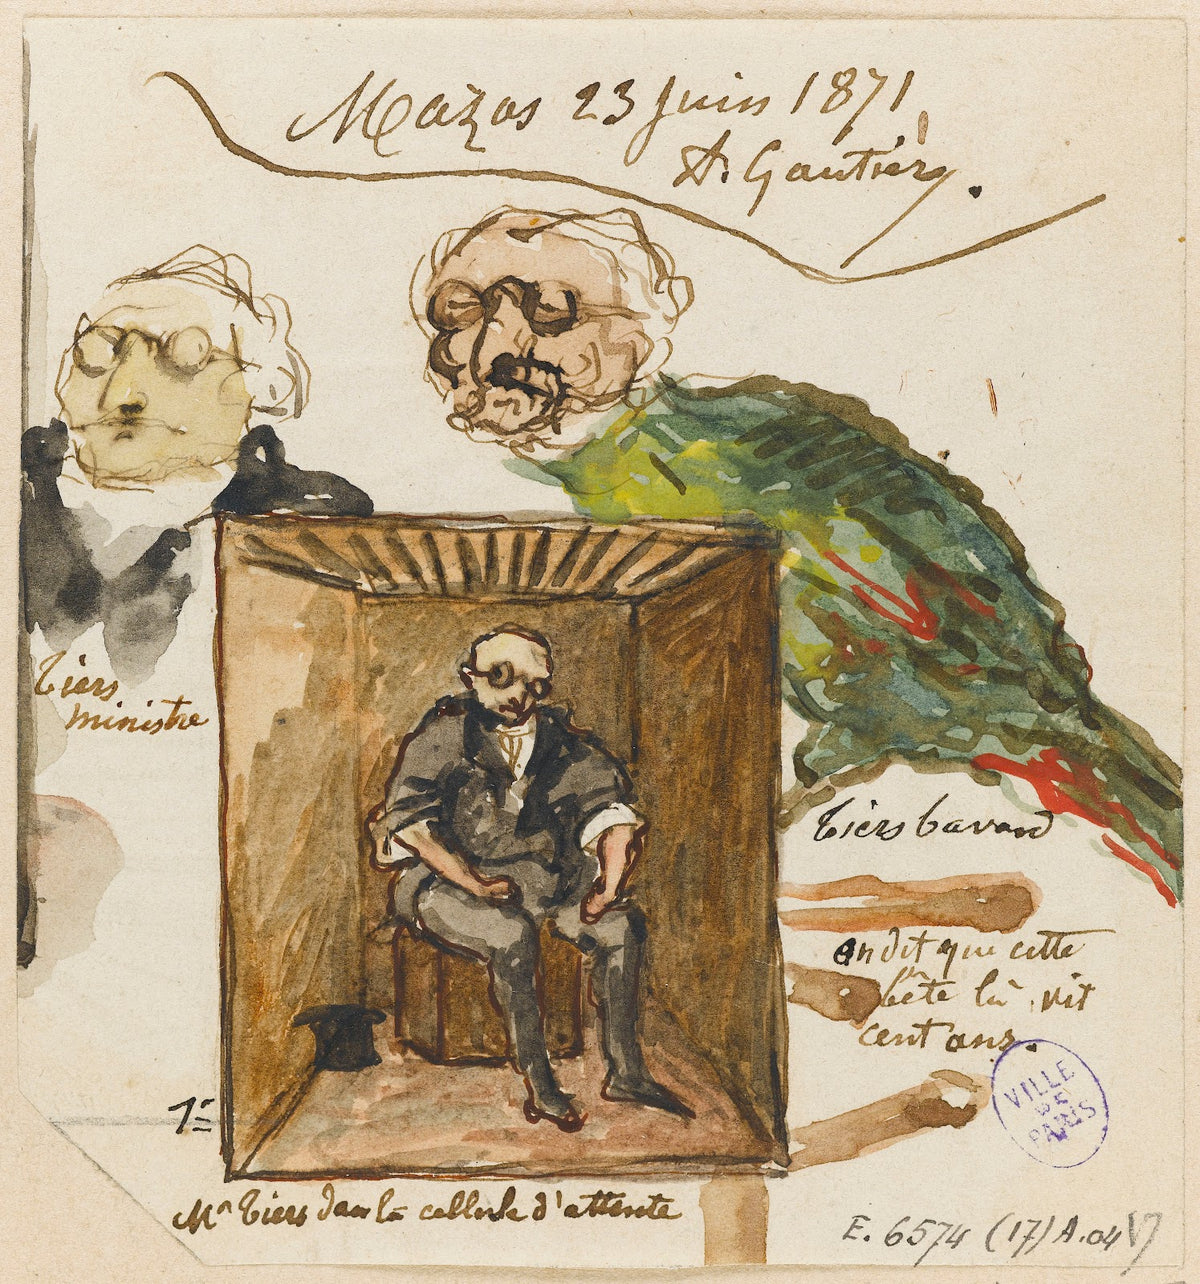 Mazas 23 juin 1871
A. Gautier
Tiers
ministre
Tiers bavard
on dit que cette
bête là vit
cent ans.
VILLE
DE
PARIS
1er
Mr Tiers dans la cellule d'attente
E. 6574 (17) A.04